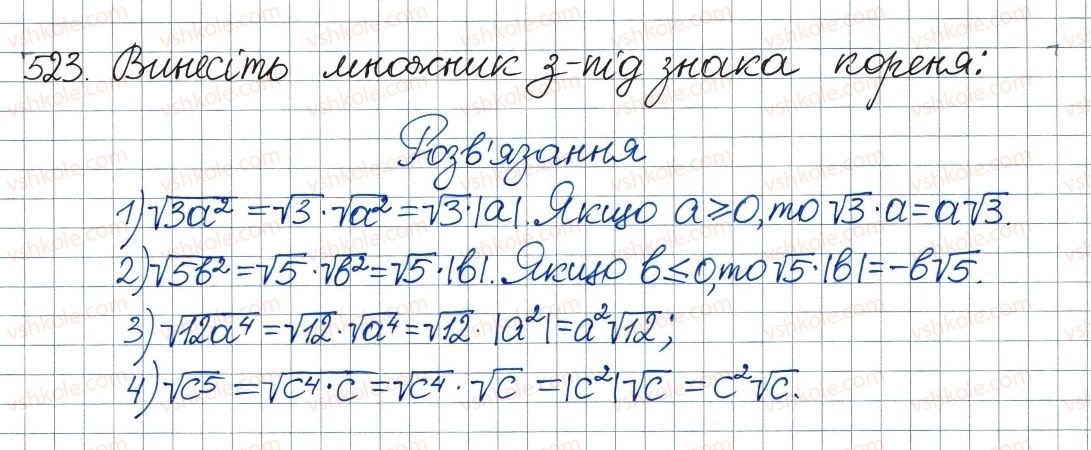 523. Винесіть множник з-під знака кореня:
Розв'язання
1) √3a² = √3 · √a² = √3 · |a|. Якщо a ≥ 0, то √3 · a = a√3.
2) √5b² = √5 · √b² = √5 · |b|. Якщо b ≤ 0, то √5 · |b| = -b√5.
3) √12a⁴ = √12 · √a⁴ = √12 · |a²| = a²√12;
4) √c⁵ = √c⁴ · c = √c⁴ · √c = |c²|√c = c²√c.